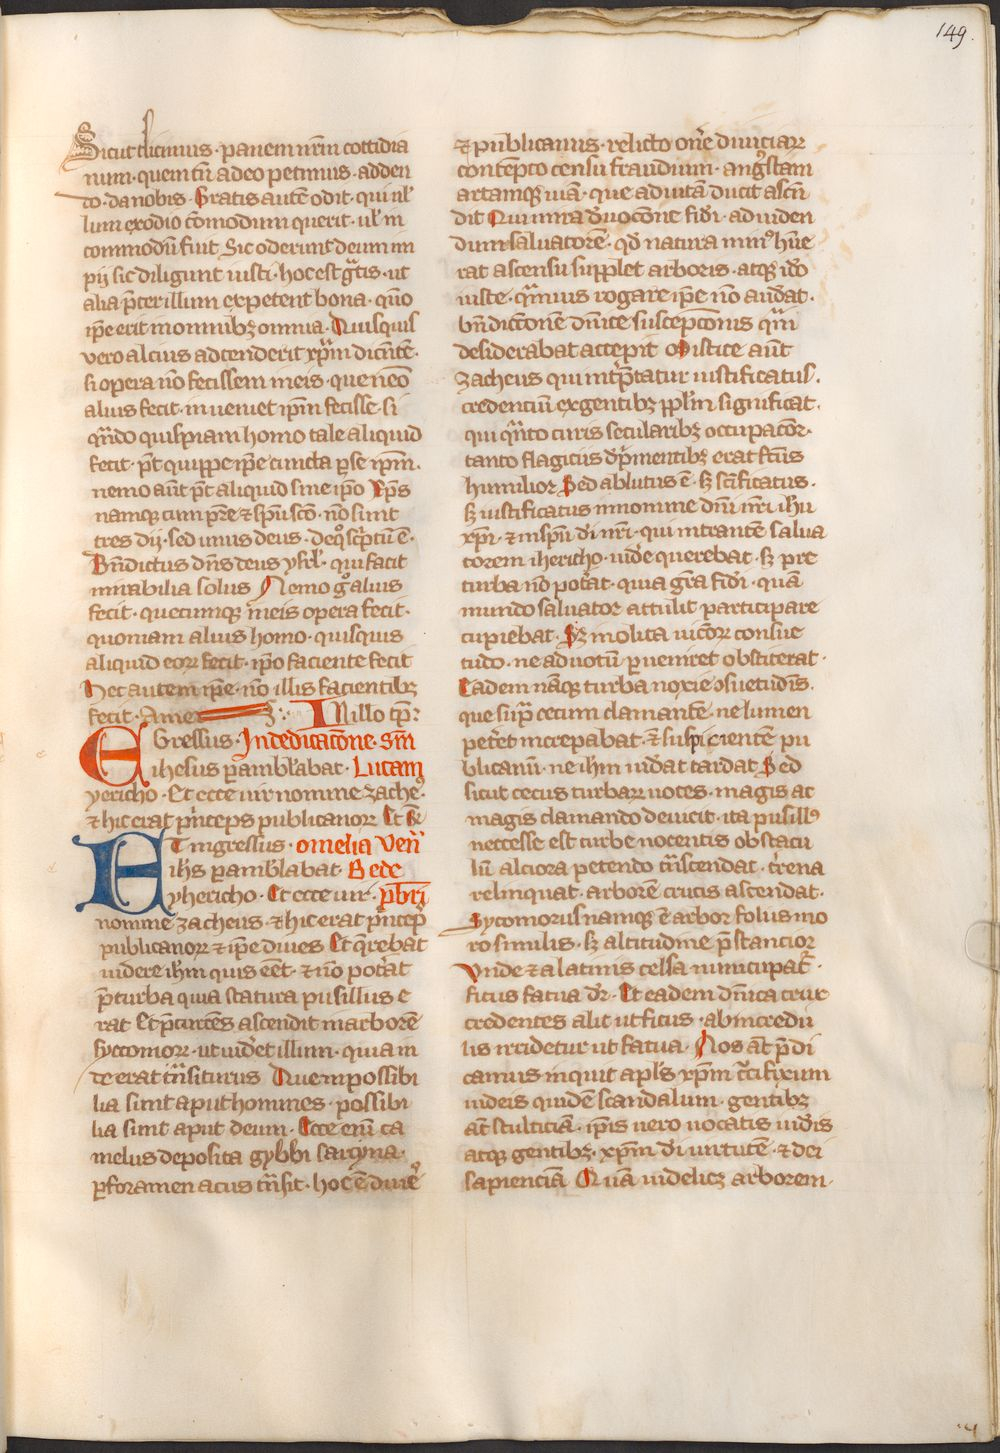 149.
Sicut dicimus · panem nr̄m cottidia
num · quem tn̄ a deo petimus · adden
do · da nobis · Gratis autē odit · qui nl̄
lum ex odio cōmodum querit · ul̄ in
commodū fuit Sic oderunt deum im
pij sic diligunt iusti · hoc est gr̄tis · ut
alia p̄ter illum expetent bona · qm̄o
ip̄e erit in omnibꝫ omnia · Quisquis
vero alcius adtenderit xp̄m dicentē ·
si opera nō fecissem in eis · que nēo
alius fecit · inueniet ip̄m fecisse · si
qn̄do quispiam homo tale aliquid
fecit · p̄t quippe ip̄e cuncta per se ip̄m ·
nemo aūt p̄t aliquid sine ip̄o Xp̄s
namqꝫ cum pr̄e ⁊ sp̄u scō · nō sunt
tres dij · sed unus deus · de qͦ sc̄ptū ē ·
Bn̄dictus dn̄s deus ysrl̄ · qui facit
mirabilia solus Nemo gͦ alius
fecit · quecumqꝫ in eis opera fecit ·
quoniam alius homo · quisquis
aliquid eorꝝ fecit · ip̄o faciente fecit
Hec autem ip̄e · nō illis facientibꝫ
fecit · Amen In illo tp̄r
EGressus · In dedicacōne · sm̄
ihesus perambl̄abat · Lucam
yericho · Et ecce uir nomine zacheꝰ
⁊ hic erat p̄nceps publicanorꝝ Et r̄
ET ingressus · omelia ven̄
ih̄s perambl̄abat · Bede
yhericho · Et ecce uir · p̄br̄i
nomine zacheus · ⁊ hic erat p̄ncep
publicanorꝝ ⁊ ip̄e diues Et q̄rebat
uidere ih̄m quis eēt · ⁊ nō pot̄at
p̄ turba quia statura pusillus e
rat Et p̄currēs ascendit in arborē
syccomorꝝ · ut uid̄et illum · quia in
de erat tn̄siturus Que inpossibi
lia sunt aput homines · possibi
lia sunt aput deum · Ecce eni̅ ca
melus deposita gybbi sarcina ·
per foramen acus tn̄sit · hoc ē diueˢ
⁊ publicanus · relicto oner̄e diuiciarꝝ
contēpto censu fraudium · angꝰstam
artamqꝫ uiā · que ad uitā ducit ascn̄
dit Qui mira d̄uocōne fid̄i · ad uiden
dum saluatorē · qd̄ natura minꝰ hūe
rat ascensu supplet arboris · atqꝫ id̄o
iuste · qm̄uis rogare ip̄e nō audeat ·
bn̄dictionē dn̄ice suscepcōnis qm̄
desiderabat accepit Mistice aūt
zacheus qui int̄p̄tatur iustificatus ·
credenciū ex gentibꝫ pplm̄ significat ·
qui qn̄to curis secularibꝫ occupacōr ·
tanto flagiciis dep̄mentibꝫ erat fc̄us
humilior Sed ablutus ē · sꝫ sc̄ificatus ·
sꝫ iustificatus in nomine dn̄i nr̄i ih̄u
xp̄i · ⁊ in sp̄u d̄i nr̄i · qui intrantē salua
torem ihericho · uid̄e querebat · sꝫ pre
turba nō pot̄at · quia gr̄a fid̄i · quā
mundo saluator attulit participare
cupiebat · Sꝫ inolita uicōꝝ consue
tudo · ne ad uotū perueniret obstiterat ·
Eadem nāqꝫ turba noxie ↄsuetudīs ·
que sup̄ cecum clamantē · ne lumen
pet̄et increpabat · ⁊ suspicientē pu
blicanū · ne ih̄m uid̄at tardat Sed
sicut cecus turbarꝝ uoces · magis ac
magis clamando deuicit · ita pusillꝰ
neccesse est turbe nocentis obstacu
lū alciora petendo tn̄scendat · t̄rena
relinquat · arborē crucis ascendat ·
Sycomorus namqꝫ ē arbor folus mo
ro similis · sꝫ altitudine p̄stancior
Vnde ⁊ a latinis celsa nuncupat̄ ·
ficus fatua dr̄ · Et eadem dn̄ica crux
credentes alit ut ficus · ab incredu
lis irridetur ut fatua · Nos aūt p̄di
camus inquit apl̄s xp̄m c̄cifixum
iudeis quidē scandalum · gentibꝫ
aūt stulticiā · ip̄is uero uocatis iud̄is
atqꝫ gentibꝫ · xp̄m d̄i uirtutē · ⁊ dei
sapienciā Quā uidelicꝫ arborem ·